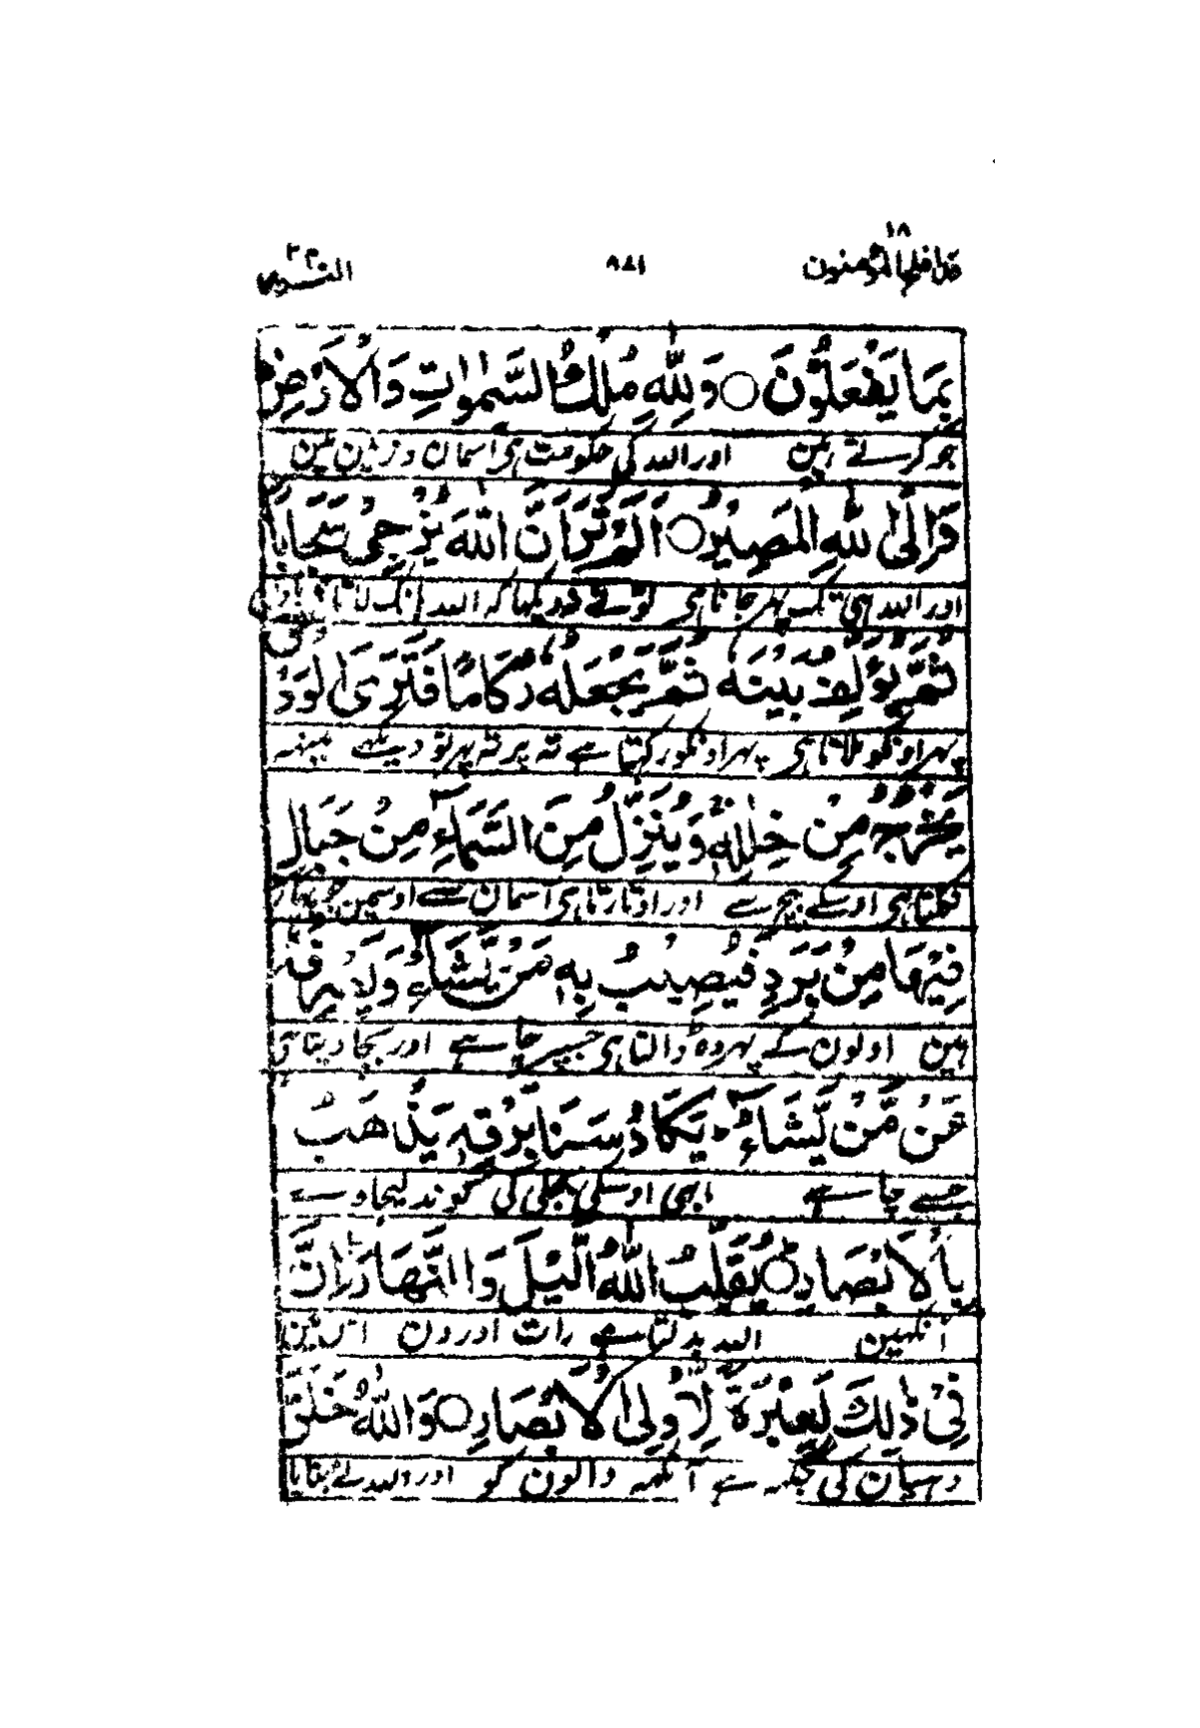 ١٨
قد افلح المؤمنون ٨٧١ النور ٢٤
بِمَا يَفْعَلُوْنَ ○ وَلِلّٰهِ مُلْكُ السَّمٰوٰتِ وَالْاَرْضِ
جو کرتے ہین اور اللہ کی حکومت ہی آسمان و زمین مین
وَاِلَى اللّٰهِ الْمَصِيْرُ ○ اَلَمْ تَرَ اَنَّ اللّٰهَ يُزْجِىْ سَحَابًا
اور اللہ ہی تک پھر جانا ہی تو نے نہ دیکھا کہ اللہ ہانک لاتا
ثُمَّ يُؤَلِّفُ بَيْنَهٗ ثُمَّ يَجْعَلُهٗ رُكَامًا فَتَرَى الْوَدْ
پھر اونکو ملاتا ہی پھر اونکو رکھتا ہے تہ پر تہ پھر تو دیکھے مینہہ
يَخْرُجُ مِنْ خِلٰلِهٖ وَيُنَزِّلُ مِنَ السَّمَآءِ مِنْ جِبَالٍ
نکلتا ہی اوسکے بیچ سے اور اوتارتا ہی آسمان سے اوسمین جو پہاڑ
فِيْهَا مِنْ بَرَدٍ فَيُصِيْبُ بِهٖ مَنْ يَّشَآءُ وَيَصْرِفُهٗ
ہین اولون کے پھر وہ ڈالتا ہی جسپر چاہے اور بچا دیتا ہی
عَنْ مَّنْ يَّشَآءُ ؕ يَكَادُ سَنَا بَرْقِهٖ يَذْهَبُ
جسے چاہے ابھی اوسکی بجلی کی کوند لیجاوے
بِالْاَبْصَارِ ○ يُقَلِّبُ اللّٰهُ الَّيْلَ وَالنَّهَارَ اِنَّ
آنکھین اللہ بدلتا ہے رات اور دن اس مین
فِىْ ذٰلِكَ لَعِبْرَةً لِّاُولِى الْاَبْصَارِ ○ وَاللّٰهُ خَلَقَ
دہیان کی جگہہ ہے آنکھہ والون کو اور اللہ نے بنایا